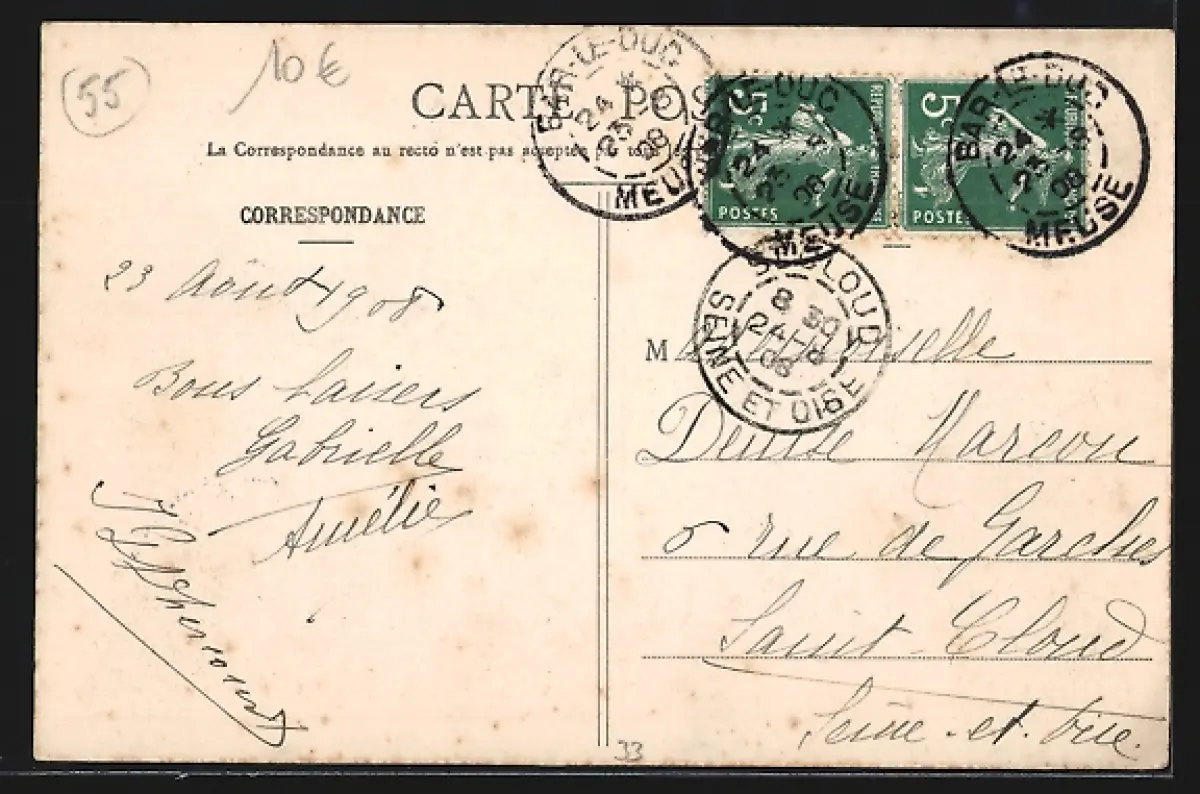 55
10€
CARTE POS
La Correspondance au recto n'est pas acceptée par tous
BAR-LE-DUC
24 *
23 8
08
MEUSE
BAR-LE-DUC
24 *
23 8
08
MEUSE
BAR-LE-DUC
24 *
23 8
08
MEUSE
5c
POSTES
5c
POSTES
CORRESPONDANCE
23 Août 1908
Bons baisers
Gabrielle
Amélie
St CLOUD
8 30
24 - 8
08
SEINE ET OISE
Mademoiselle
Denise Marcou
5 rue de Garches
Saint-Cloud
Seine-et-Oise.
33